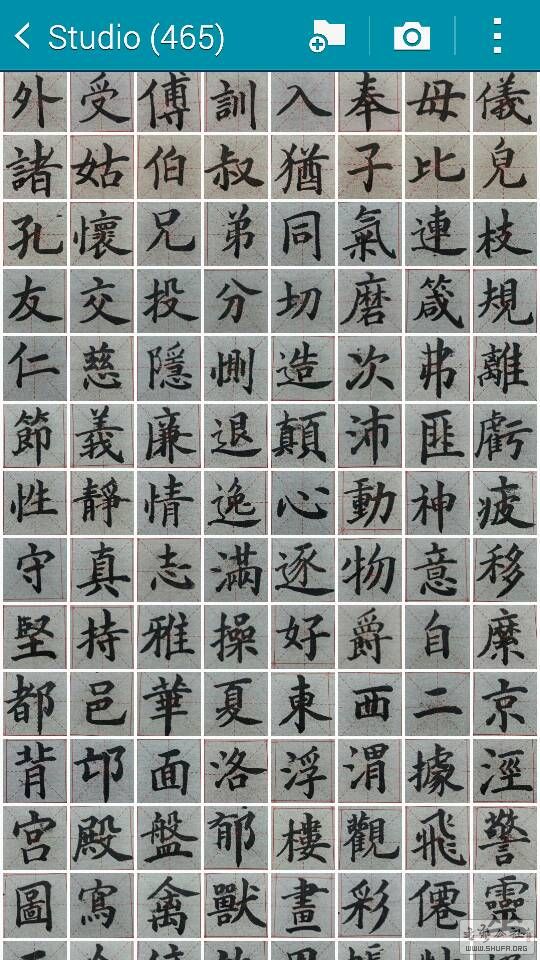 Studio (465)
外受傅訓入奉母儀
諸姑伯叔猶子比兒
孔懷兄弟同氣連枝
友交投分切磨箴規
仁慈隱惻造次弗離
節義廉退顛沛匪虧
性靜情逸心動神疲
守真志滿逐物意移
堅持雅操好爵自縻
都邑華夏東西二京
背邙面洛浮渭據涇
宮殿盤郁樓觀飛警
圖寫禽獸畫彩僊靈
WWW.SHUFA.ORG